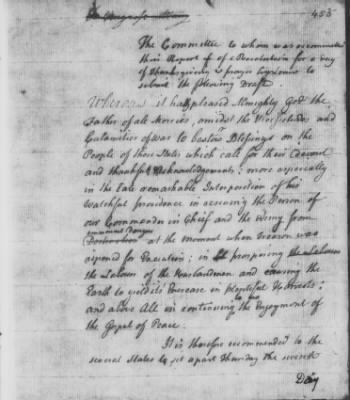 453
The Committee to whom was recommitted
their Report of a Proclamation for a day
of Thanksgiving & prayer beg leave to
submit the following Draft.
Whereas it hath pleased Almighty God the
Father of all Mercies, amidst the Vicissitudes and
Calamities of War to bestow Blessings on the
People of these States which call for their devout
and thankful Acknowledgements; more especially
in the late remarkable Interposition of his
watchful providence in rescuing the Person of
our Commander in Chief and the Army from
imminent Dangers
Destruction at the moment when Treason was
ripened for Execution; in prospering the Labours
the Labour of the Husbandman and causing the
Earth to yield its Increase in plentiful Harvests;
and above All in continuing to us the Enjoyment of
the Gospel of Peace.
It is therefore recommended to the
several States to set apart Thursday the seventh
Day